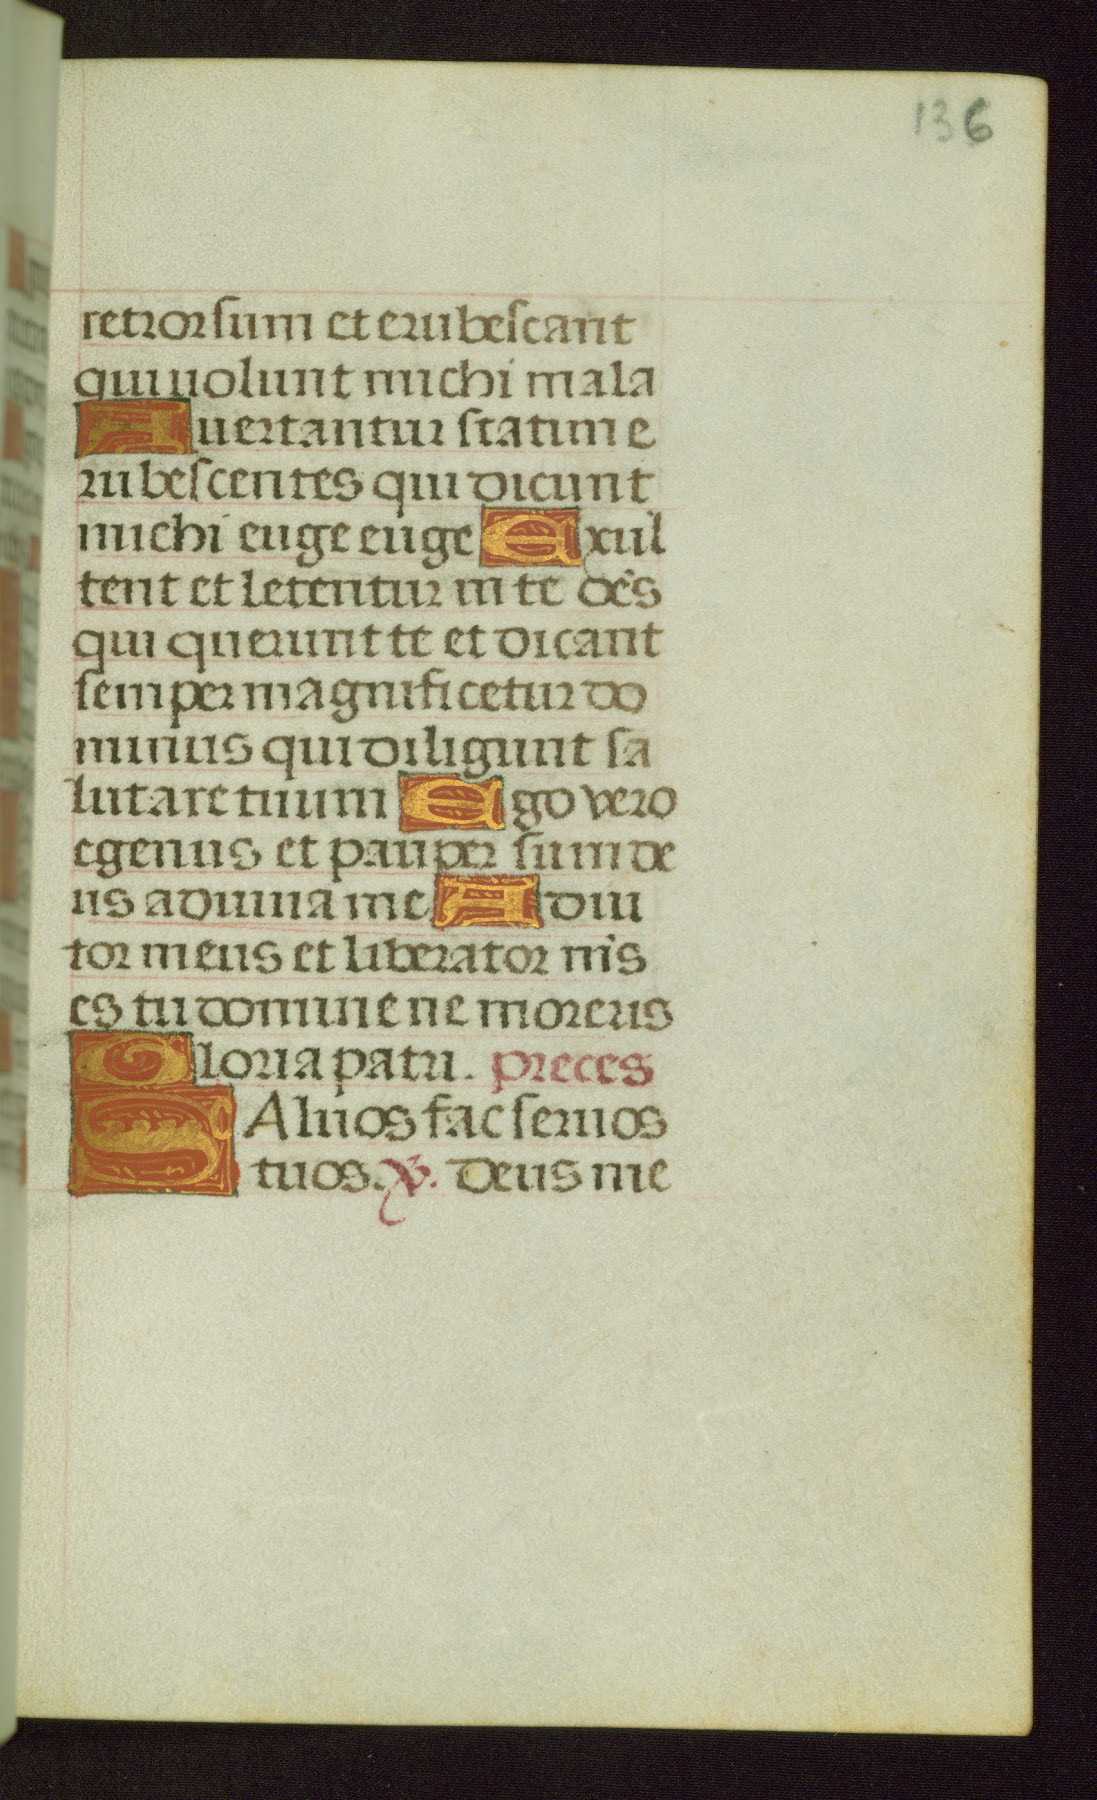 136
retrorsum et erubescant
qui uolunt michi mala
Auertantur statim e
rubescentes qui dicunt
michi euge euge Exul
tent et letentur in te dẽs
qui querunt te et dicant
semper magnificetur do
minus qui diligunt sa
lutare tuum Ego vero
egenus et pauper sum de
us adiuua me Adiu
tor meus et liberator m̃s
es tu domine ne moreris
Gloria patri. preces
SAluos fac seruos
tuos. ℟. Deus me